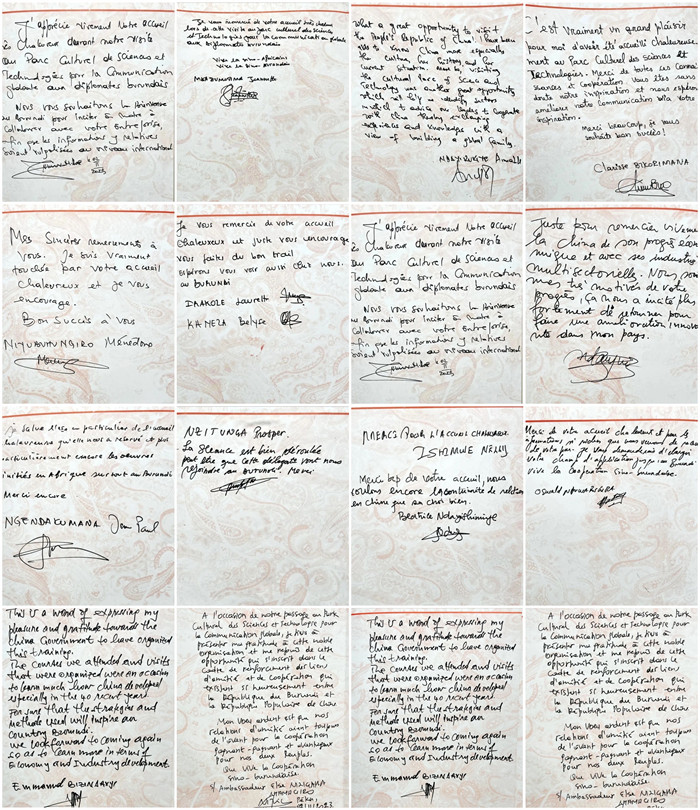 J'apprécie vivement Notre accueil
Chaleureux durant notre visite
au Parc Culturel de Sciences et
Technologies pour la Communication
globale aux diplomates burundais
Nous vous souhaitons la
au Burundi pour inciter
Collaborer avec votre Entreprise,
fin que les informations y relatives
soient vulgarisées au niveau international
2023
Je vous remercie de votre accueil très chaleu
lors de la visite au parc culturel des sciences
et Technologies pour la communication globale
aux diplomates burundais
Vive la
Vive la sino-burundais
Jeannette
What a great opportunity to visit
the People's Republic of China! I have been
able to know China more especially
the cultural, history and the
current situation. and by visiting
the cultural Parc of Science and
Technology was another great opportunity
which will help us identify sectors
which to advise our leaders to cooperate
with China thereby exchanging
experiences and knowledge with a
view of building a global family.
C'est vraiment un grand plaisir
pour moi d'avoir été accueilli chaleureuse
ment au Parc Culturel des Sciences et
Technologies. Merci de toutes ces connai
ssances et Coopération. Vous êtes sans
doute notre inspiration et nous espérons
améliorer notre Communication via votre
inspiration.
Merci beaucoup, je vous
souhaite bon succès!
Clarisse BIKORIMANA
Mes Sincères remerciements à
vous. Je suis vraiment
touchée par votre accueil
chaleureux et je vous
encourage.
Bon Succès à vous
NIYUBAHUNGIRO Menedore
Je vous remercie de votre accueil
chaleureux et juste vous encourage
vous faites du bon travail
Espérons vous voir aussi chez nous
au BURUNDI
IRAKOZE Laurette
KANEZA Belyse
J'apprécie vivement Notre accueil
Chaleureux durant notre visite
au Parc Culturel de Sciences et
Technologies pour la Communication
globale aux diplomates burundais
Nous vous souhaitons la
au Burundi pour inciter
Collaborer avec votre Entreprise,
fin que les informations y relatives
soient vulgarisées au niveau international
2023
Juste pour remercier viveme
la China de son progrès écono
mique et avec ses industries
multisectorielle. Nous som
mes très motivés de votre
progrès, ça nous a incité plus
fortement de retourner pour
faire une amélioration innova
nte dans mon pays.
Je salue l'Etat en particulier de l'accueil
chaleureuse qu'elle nous a réservé et plus
particulièrement encore les oeuvres
initiées en Afrique surtout au Burundi
Merci encore
NGENDAKUMANA Jean Paul
NZITUNGA Prosper.
La Séance est bien déroulée
peut être que cette délégation va nous
rejoindre au Burundi. Merci.
MERCI POUR L'ACCUEIL CHALEUREUX
ISHIMWE NELLY
Merci bcp de votre accueil, nous
voulons encore la continuité de relation
en Chine que sa soit bien.
Béatrice Ndayishimiye
Merci de votre accueil chaleureux et pour les
informations si riches que vous venez de nous
de votre part. Je vous demanderai d'élargir
votre champ d'application jusqu'au Burundi
Vive la Coopération Sino-burundaise.
Oswald
This is a word of expressing my
pleasure and gratitude towards the
China Government to have organized
this training.
The Courses we attended and visits
that were organized were an occasion
to learn much how China developed
especially in the 40 recent years.
For sure that the strategies and
methods used will inspire our
country Burundi.
We look forward to coming again
so as to learn more in terms of
Economy and Industry development.
Emmanuel BIZINDAVYI
A l'occasion de notre passage au Park
Cultural des Sciences et Technologie pour
la Communication Globale, je tiens à
présenter ma gratitude à cette noble
organisation et me réjouis de cette
opportunité qui s'inscrit dans le
Cadre de renforcement des liens
d'amitié et de Coopération qui
existent si heureusement entre
la République du Burundi et
la République Populaire de Chine
Mon vœu ardent est que nos
relations d'amitié aient toujours
de l'avant pour la coopération
gagnant-gagnant et avantageux
pour nos deux Peuples.
Que Vive la Coopération
sino-burundaise.
S/ Ambassadeur
This is a word of expressing my
pleasure and gratitude towards the
China Government to have organized
this training.
The Courses we attended and visits
that were organized were an occasion
to learn much how China developed
especially in the 40 recent years.
For sure that the strategies and
methods used will inspire our
country Burundi.
We look forward to coming again
so as to learn more in terms of
Economy and Industry development.
Emmanuel BIZINDAVYI
A l'occasion de notre passage au Park
Cultural des Sciences et Technologie pour
la Communication Globale, je tiens à
présenter ma gratitude à cette noble
organisation et me réjouis de cette
opportunité qui s'inscrit dans le
Cadre de renforcement des liens
d'amitié et de Coopération qui
existent si heureusement entre
la République du Burundi et
la République Populaire de Chine
Mon vœu ardent est que nos
relations d'amitié aient toujours
de l'avant pour la coopération
gagnant-gagnant et avantageux
pour nos deux Peuples.
Que Vive la
Coopération
sino-burundaise.
S/ Ambassadeur